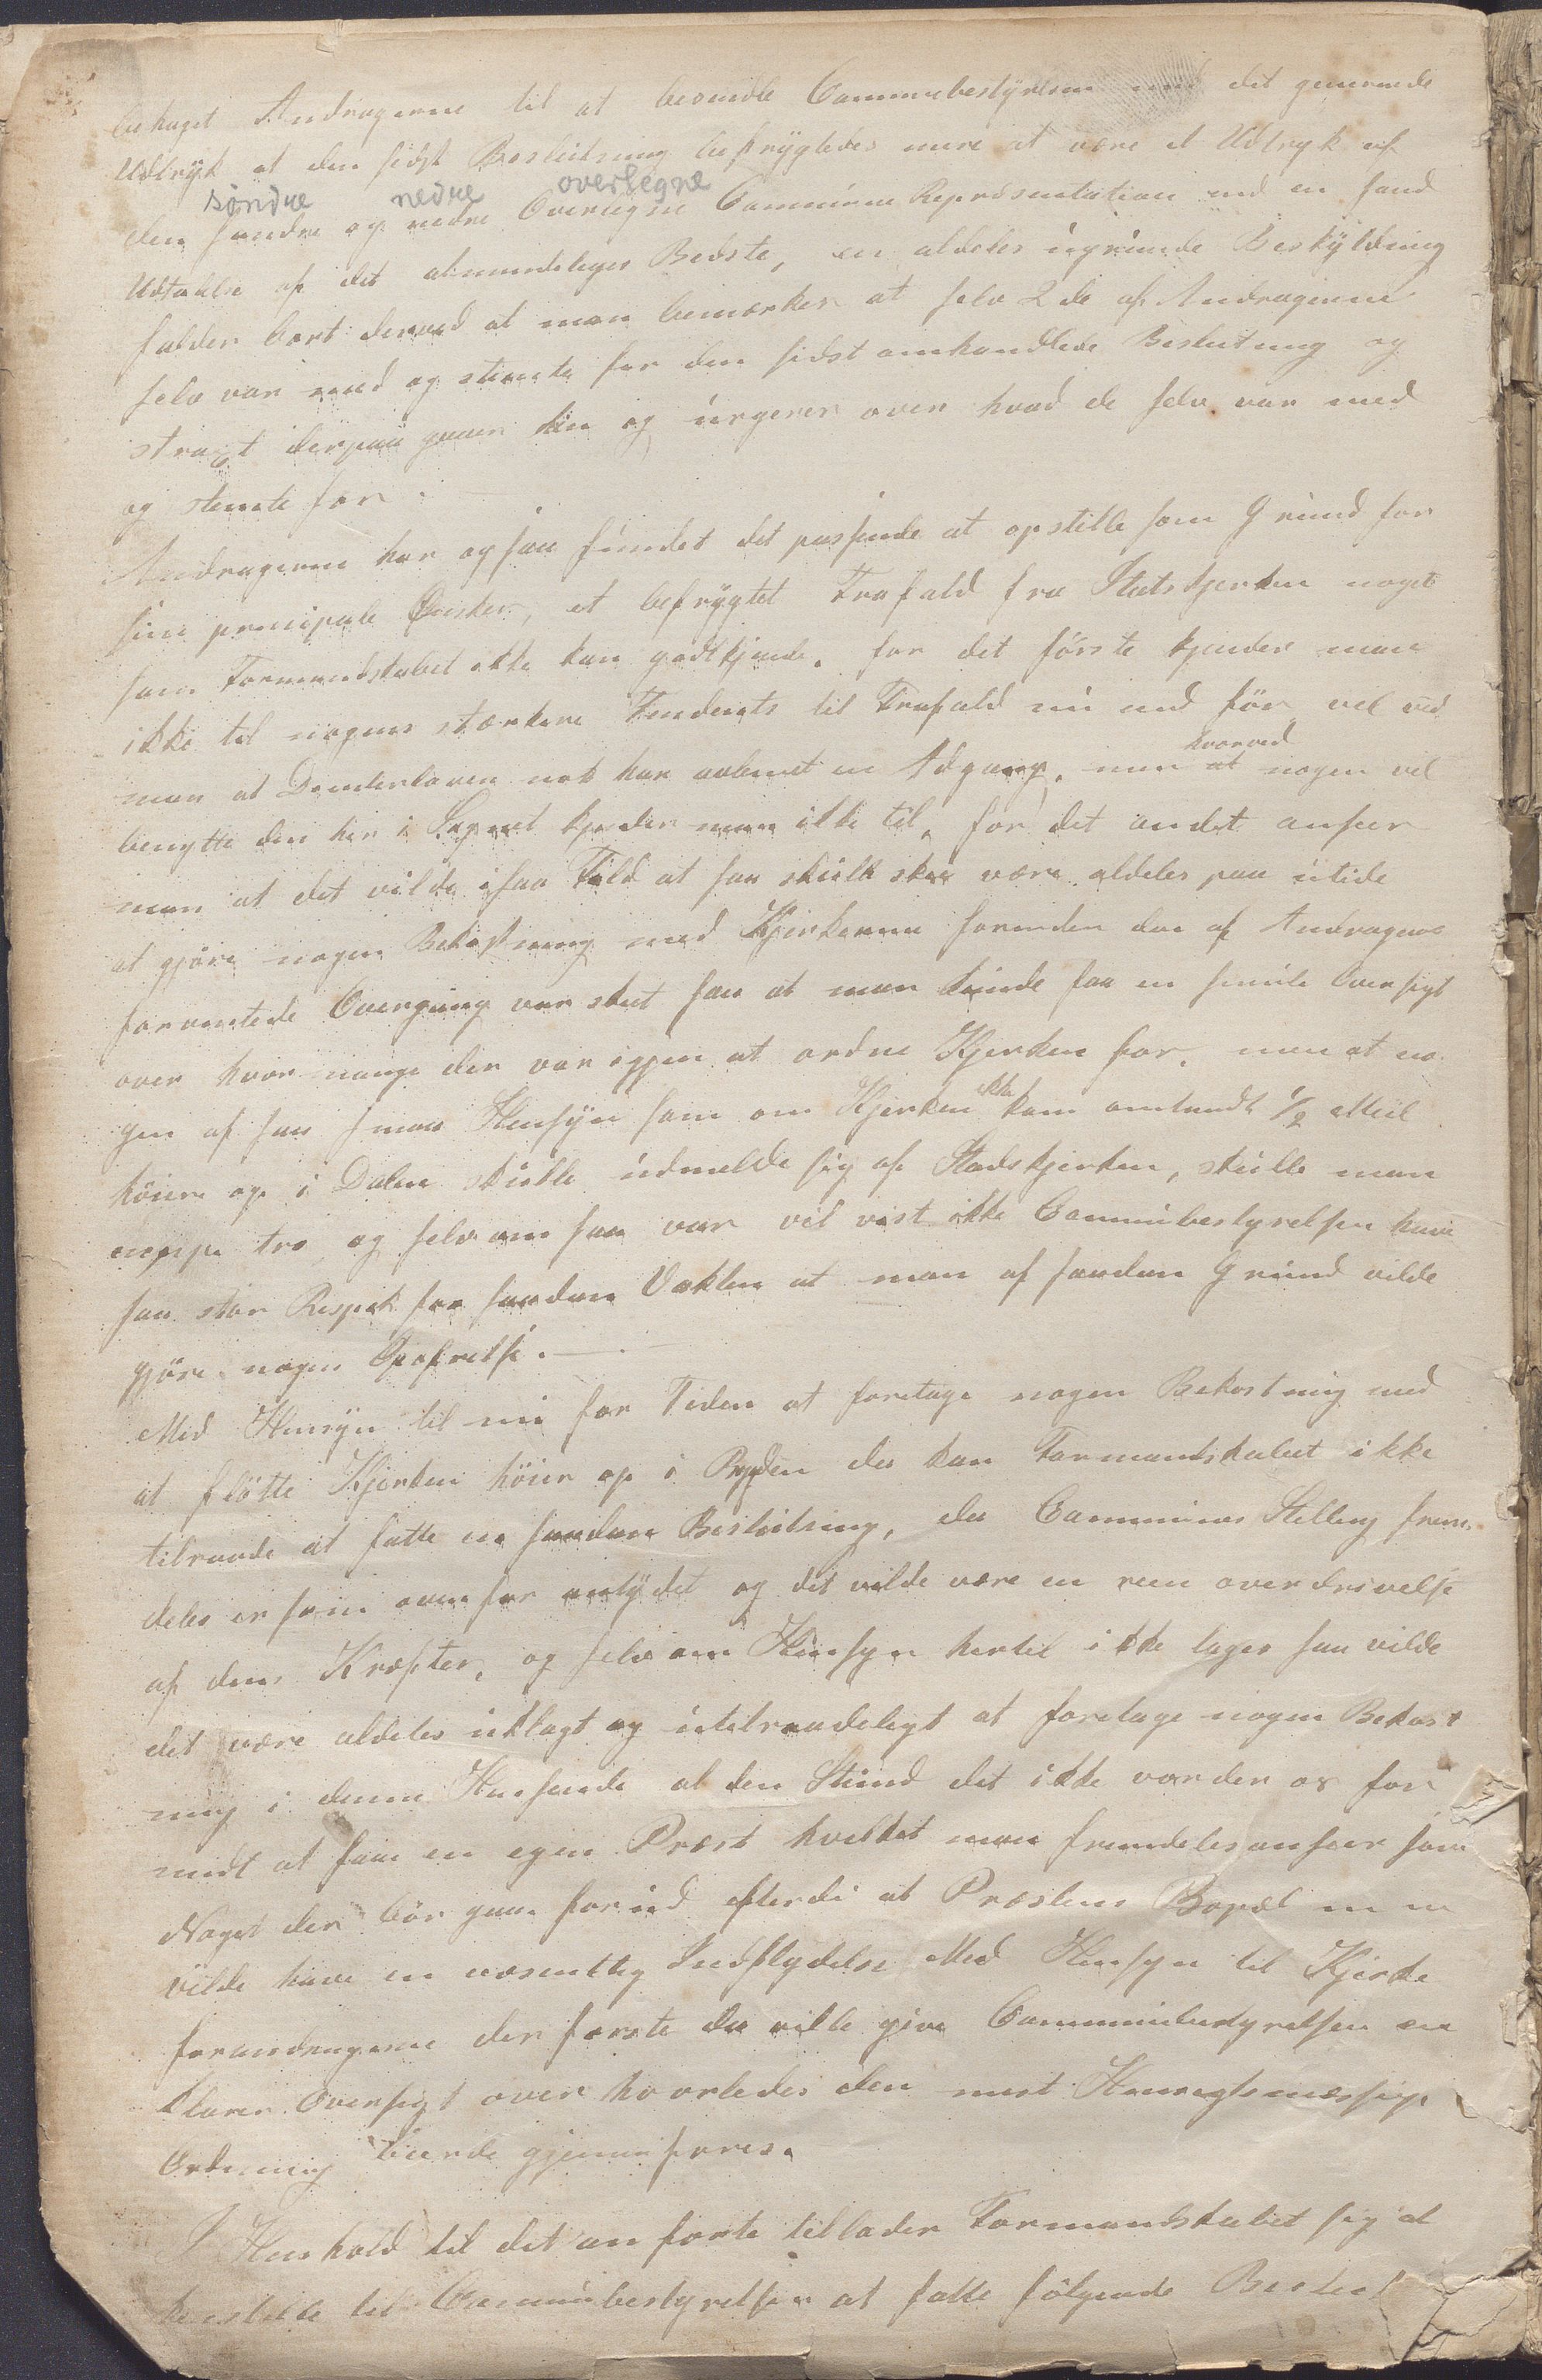 behaget Andragerne til at besmile Communebestyrelsen med det generende
Udtryk at den sidst Beslutning befrygtedes mere at være et Udtryk af
søndre nedre oversegne
den søndre og nedre Oversegne Commune Repræsentation end en sand
Udtalelse af det almindeliges Bedste, en aldeles ugrunde Beskyldning
falder bort derved at man bemærker at selv 2 de af Andragerne
selv var med og stemte for den sidst omhandlede Beslutning og
straxt derpaa gaaer hen og urgerer over hvad de selv var med
og stemte for.
Andragerne har ogsaa fundet det passende at opstille som Grund for
sine principale Ønsker, et befrygtet Frafald fra Statskjerken noget
som Formandskabet ikke kan godtkjende, for det første kjender man
ikke til nogens stærkere Tendents til Frafald nu end før, vel ved
man at Dissenterloven nok har aabnet en Adgang, men at hvorved nogen vil
benytte den her i Sognet kjender man ikke til, for det andet anseer
man at det vilde i saa Fald at saa skulle skee være aldeles paa utide
at gjøre nogen Bekostning med Kjerkerne forinden den af Andragerne
forventede Overgang var skeet saa at man kunde faa en Oversigt
over hvor mange der var igjen at ordne Kjerken for, men at no
gen af saa smaa Hensyn som om Kjerken ikke kom omtrendt 1/2 Miil
høiere op i Dalen skulle udmelde sig af Stadskjerken, skulle man
neppe tro og selv om saa var vil vist ikke Communebestyrelsen have
saa stor Respek for saadan Vaklen at man af saadan Grund vilde
gjøre nogen Opofrelse.
Med Hensyn til nu for Tiden at foretage nogen Bekostning med
at fløtte Kjerken høier op i Bygden da kan Formandskabet ikke
tilraade at fatte en saadan Beslutning, da Communens Stilling frem
deles er som ovenfor antydet og det vilde være en reen overdrivelse
af dens Kræfter, og selv om Hensyn hertil ikke tages saa vilde
det være aldeles uklogt og utilraadeligt at foretage nogen Bekost
ning i denne Henseende al den Stund det ikke vorder os for
undt at faae en egen Præst hvilket man fremdeles anseer som
Noget der bør gaae forud efterdi at Præstens Bopæl
vilde have en væsentlig Indflydelse Med Hensyn til Kjerke
forandringerne der første da ville give Communebestyrelsen en
klarer Oversigt over hvorledes den mest Hensigtsmæssige
Ordning burde gjennemføres.
I Henhold til det anførte tillader Formandskabet sig at
henstille til Communebestyrelsen at fatte følgende Beslut